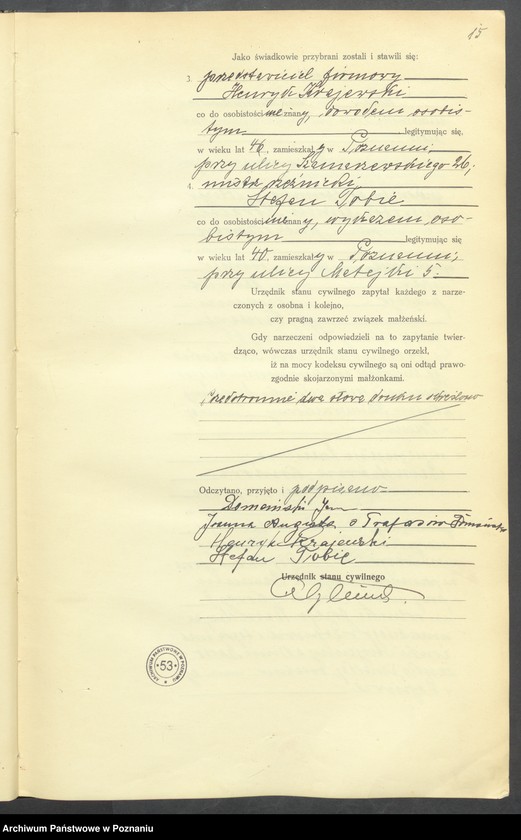 15
Jako świadkowie przybrani zostali i stawili się:
3. przedstawiciel firmowy
Henryk Krajewski
co do osobistości nieznany, dowodem osobis-
tym legitymując się,
w wieku lat 46, zamieszkały w Poznaniu,
przy ulicy 26,
4. mistrz rzeźnicki
Stefan Tobie
co do osobistości nieznany, wykazem oso-
bistym legitymując się
w wieku lat 40, zamieszkały w Poznaniu,
przy ulicy Matejki 5.
Urzędnik stanu cywilnego zapytał każdego z narze-
czonych z osobna i kolejno,
czy pragną zawrzeć związek małżeński.
Gdy narzeczeni odpowiedzieli na to zapytanie twier-
dząco, wówczas urzędnik stanu cywilnego orzekł,
iż na mocy kodeksu cywilnego są oni odtąd prawo-
zgodnie skojarzonymi małżonkami.
Przedstronnie dwa słowa druku skreślono
Odczytano, przyjęto i podpisano
Domański Jan
Joanna Augusta z Domańska
Henryk Krajewski
Stefan Tobie
Urzędnik stanu cywilnego
ARCHIWUM PAŃSTWOWE W POZNANIU
53
Archiwum Państwowe w Poznaniu